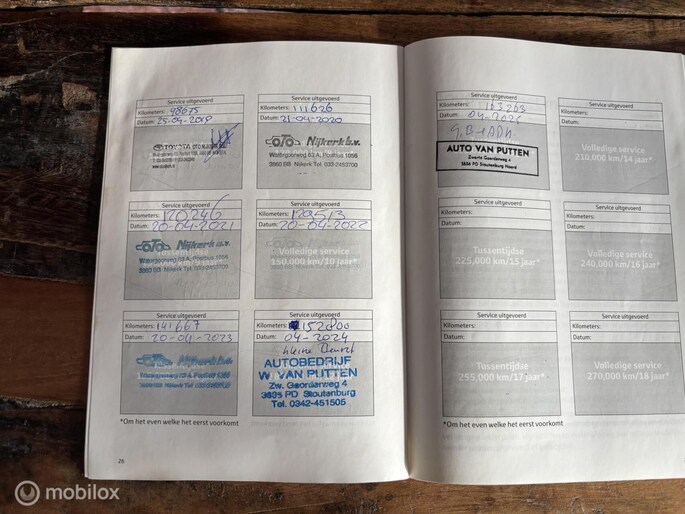 Service uitgevoerd
Kilometers: 98675
Datum: 25-04-2019
TOYOTA
Service uitgevoerd
Kilometers: 111626
Datum: 21-04-2020
Nijkerk b.v.
Watergoorweg 63 A, Postbus 1098
3860 BB Nijkerk Tel. 033-2453700
Service uitgevoerd
Kilometers: 120246
Datum: 20-04-2021
Nijkerk b.v.
Watergoorweg 63 A, Postbus 1098
3860 BB Nijkerk Tel. 033-2453700
Service uitgevoerd
Kilometers: 129513
Datum: 20-04-2022
Volledige service
150.000 km/10 jaar*
Service uitgevoerd
Kilometers: 141667
Datum: 20-04-2023
Nijkerk b.v.
Service uitgevoerd
Kilometers: 152800
Datum: 04-2024
kleine Beurt
AUTOBEDRIJF
W. VAN PUTTEN
Zw. Goorderweg 4
3835 PD Stoutenburg
Tel. 0342-451505
*Om het even welke het eerst voorkomt
26
Service uitgevoerd
Kilometers: 163263
Datum:
AUTO VAN PUTTEN
Zwarte Goorderweg 4
3836 PD Stoutenburg Noord
Service uitgevoerd
Kilometers:
Datum:
Volledige service
210,000 km/14 jaar*
Service uitgevoerd
Kilometers:
Datum:
Tussentijdse
225,000 km/15 jaar*
Service uitgevoerd
Kilometers:
Datum:
Volledige service
240,000 km/16 jaar*
Service uitgevoerd
Kilometers:
Datum:
Tussentijdse
255,000 km/17 jaar*
Service uitgevoerd
Kilometers:
Datum:
Volledige service
270,000 km/18 jaar*
*Om het even welke het eerst voorkomt
mobilox